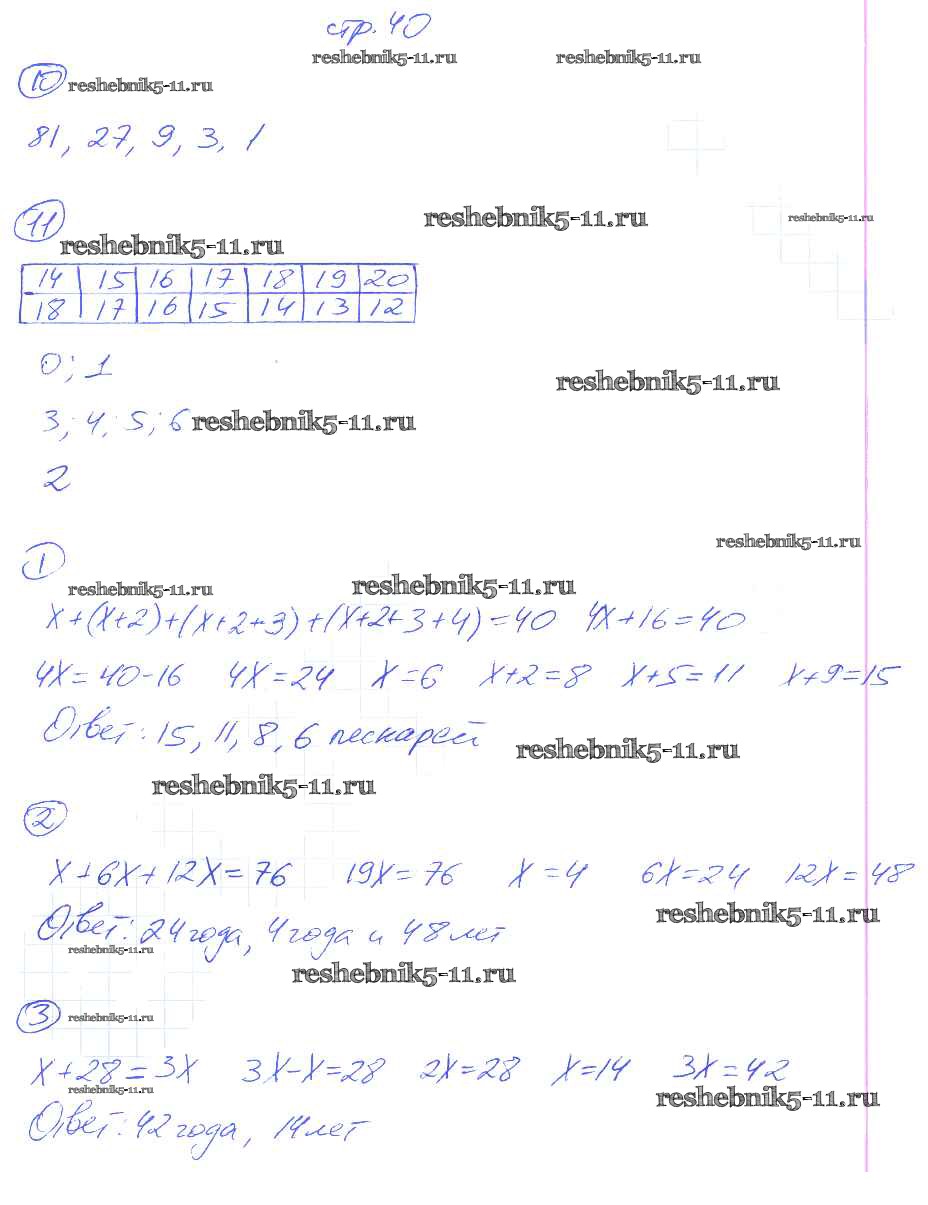 стр. 40
reshebnik5-11.ru reshebnik5-11.ru
10 reshebnik5-11.ru
81, 27, 9, 3, 1
11 reshebnik5-11.ru reshebnik5-11.ru
reshebnik5-11.ru
14 15 16 17 18 19 20
18 17 16 15 14 13 12
0; 1
reshebnik5-11.ru
3; 4; 5; 6 reshebnik5-11.ru
2
reshebnik5-11.ru
1
reshebnik5-11.ru reshebnik5-11.ru
x+(x+2)+(x+2+3)+(x+2+3+4)=40 4x+16=40
4x=40-16 4x=24 x=6 x+2=8 x+5=11 x+9=15
Ответ: 15, 11, 8, 6 пескарей reshebnik5-11.ru
reshebnik5-11.ru
2
x+6x+12x=76 19x=76 x=4 6x=24 12x=48
reshebnik5-11.ru
Ответ: 24 года, 4 года и 48 лет
reshebnik5-11.ru
reshebnik5-11.ru
3 reshebnik5-11.ru
x+28=3x 3x-x=28 2x=28 x=14 3x=42
reshebnik5-11.ru reshebnik5-11.ru
Ответ: 42 года, 14 лет